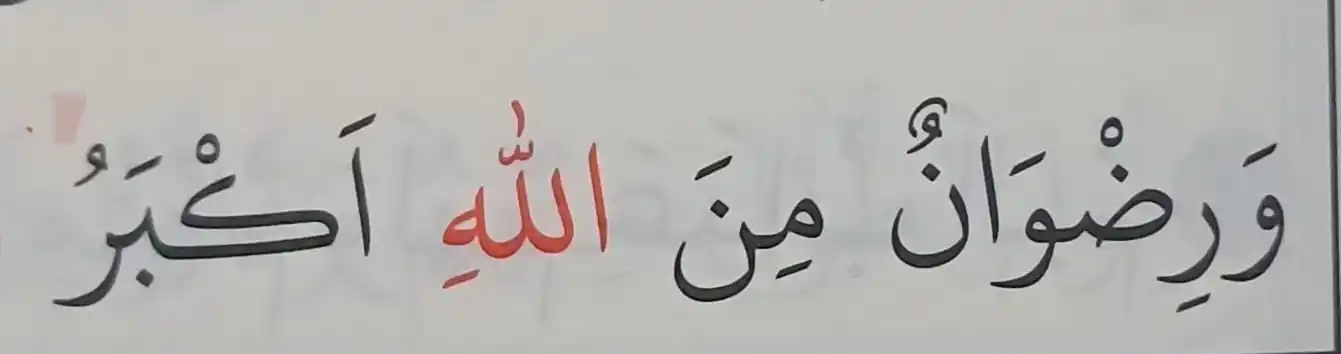 وَرِضْوَانٌ مِنَ اللّٰهِ اَكْبَرُ